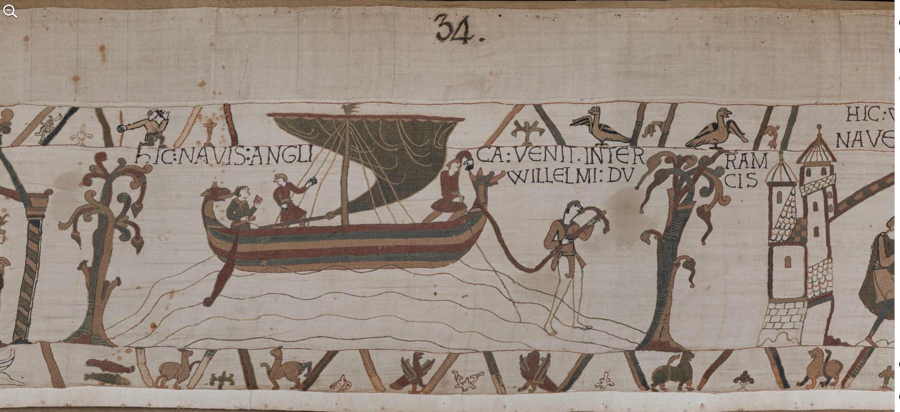 34.
HIC:NAVIS:ANGLI
CA:VENIT.INTER
WILLELMI:DV
RAM
CIS
HIC:
NAVE